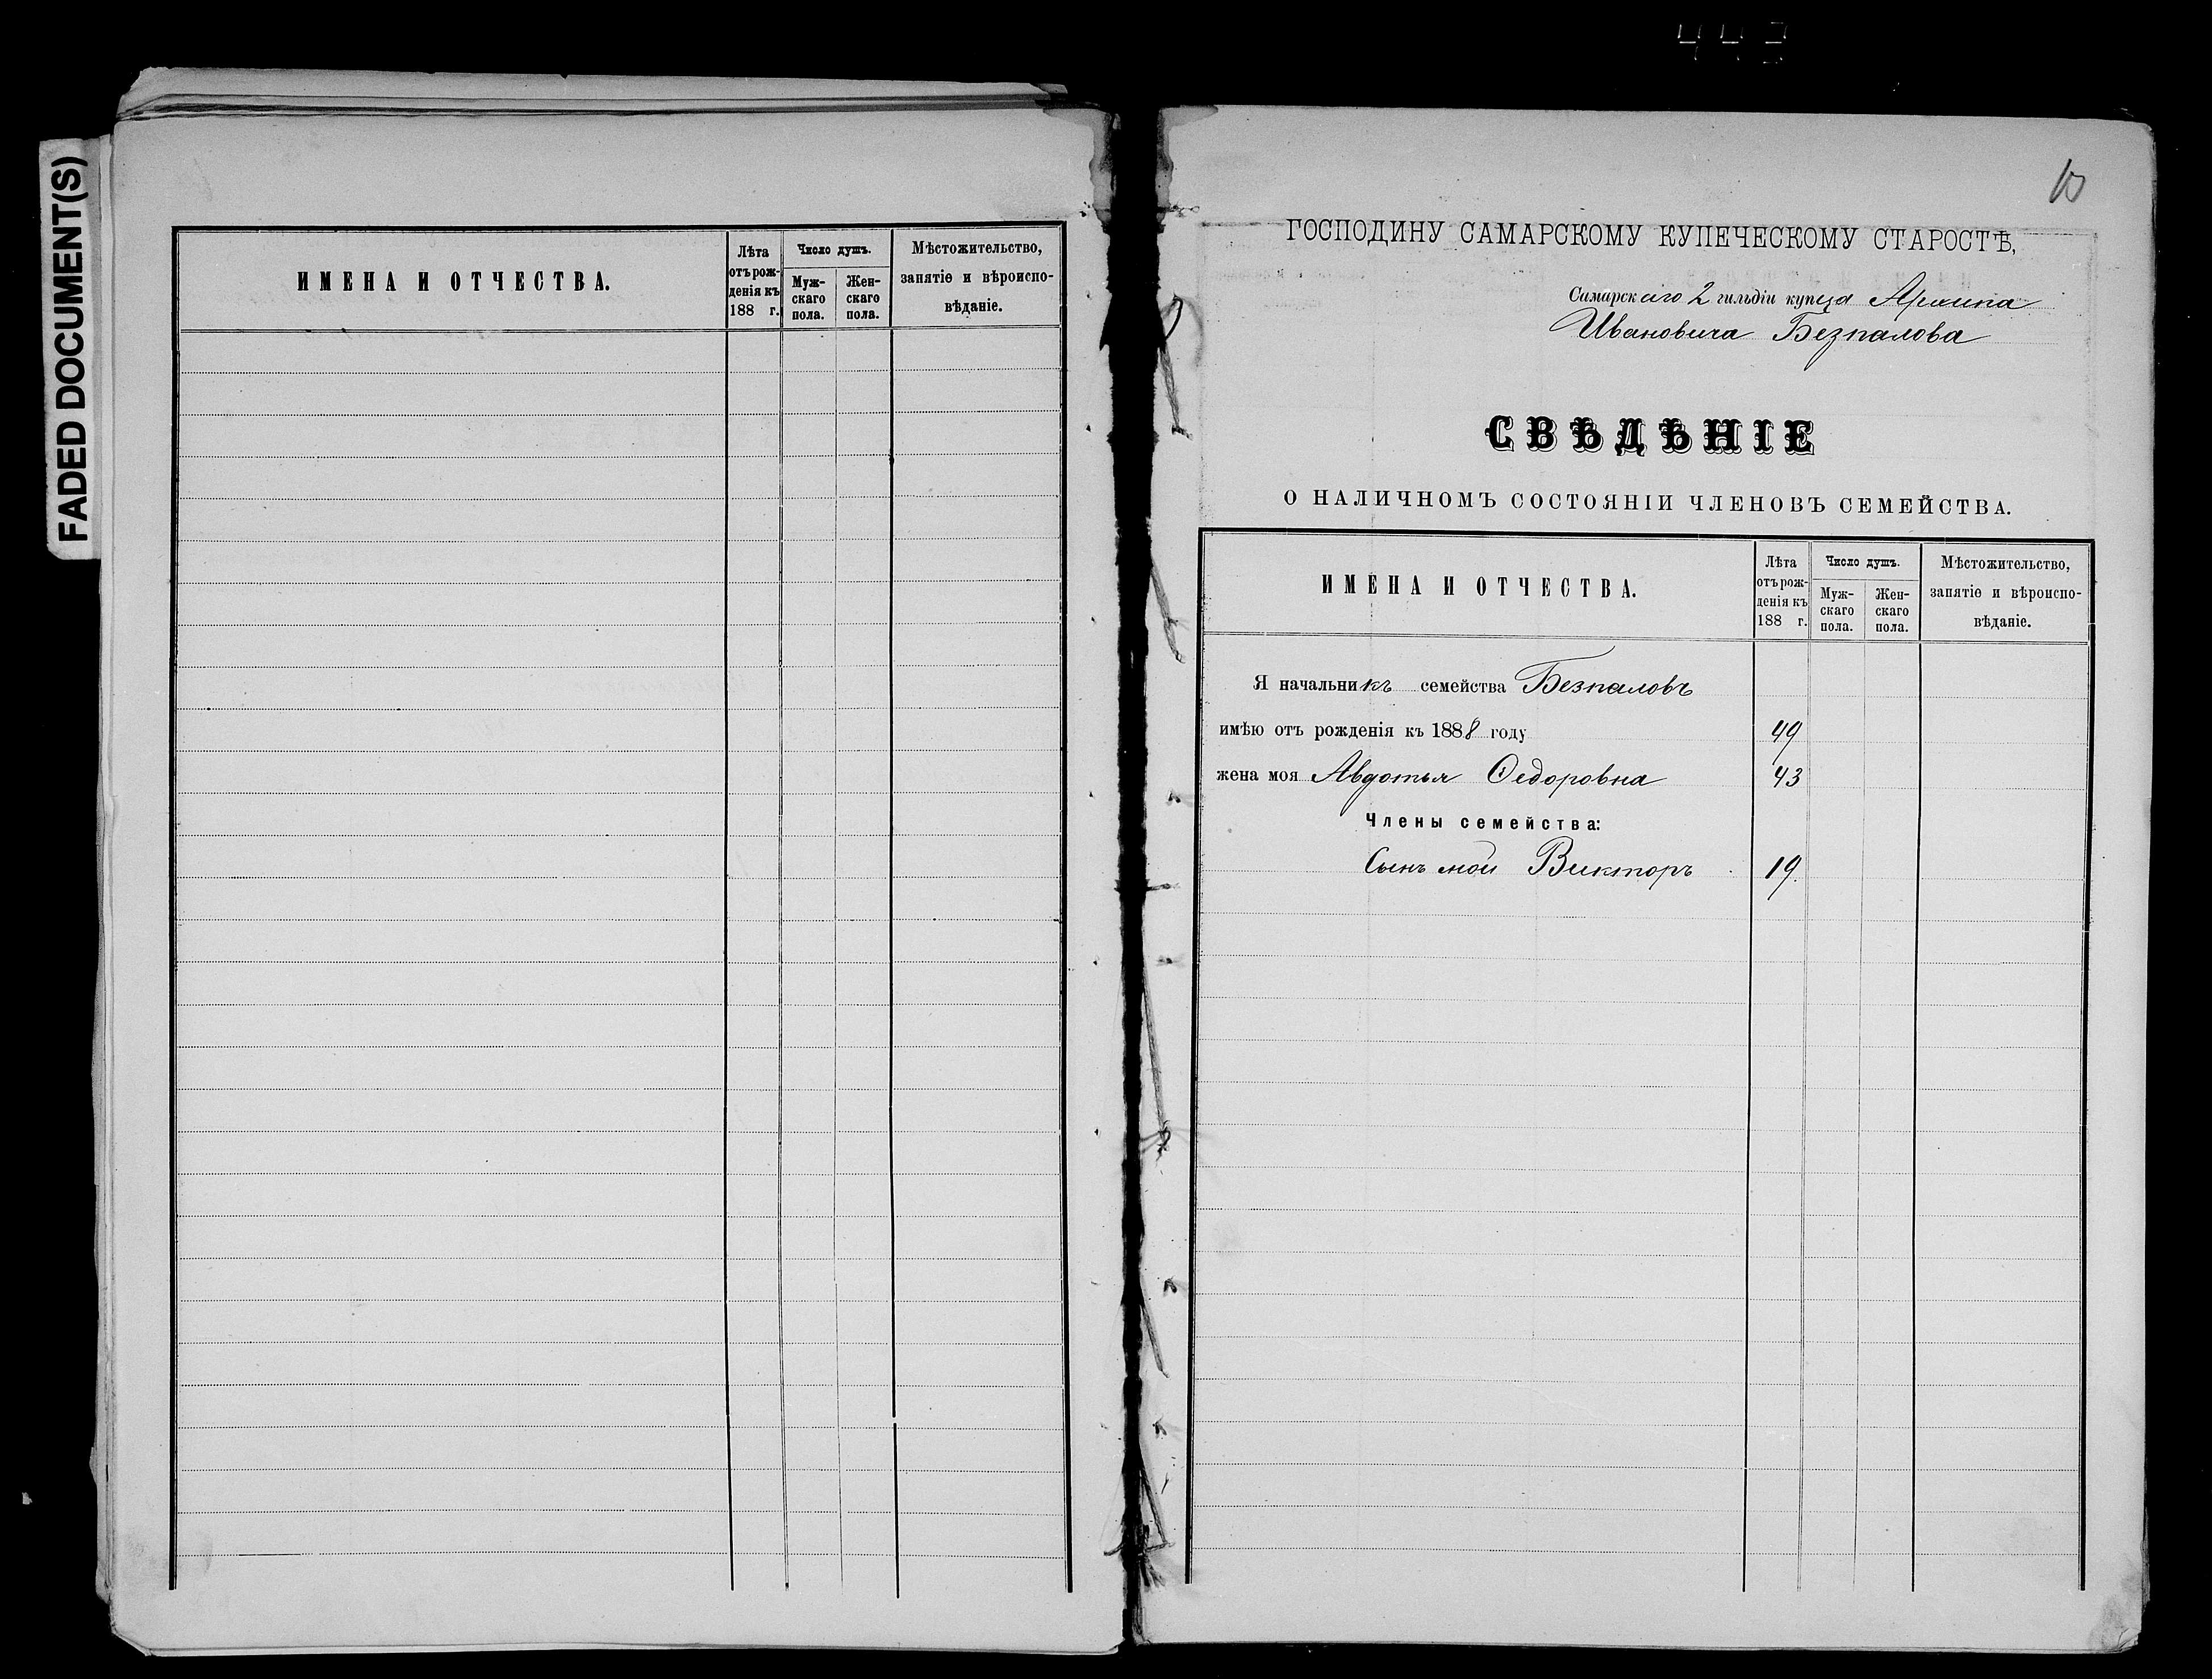 443
FADED DOCUMENT(S)
ИМЕНА И ОТЧЕСТВА.
Лѣта
отъ рож-
денія къ
188 г.
Число душъ.
Муж-
скаго
пола.
Жен-
скаго
пола.
Мѣстожительство,
занятіе и вѣроиспо-
вѣданіе.
10
ГОСПОДИНУ САМАРСКОМУ КУПЕЧЕСКОМУ СТАРОСТѢ,
Самарскаго 2 гильдіи купца Архипа
Ивановича Безпалова
СВѢДѢНІЕ
О НАЛИЧНОМЪ СОСТОЯНІИ ЧЛЕНОВЪ СЕМЕЙСТВА.
ИМЕНА И ОТЧЕСТВА.
Лѣта
отъ рож-
денія къ
188 г.
Число душъ.
Муж-
скаго
пола.
Жен-
скаго
пола.
Мѣстожительство,
занятіе и вѣроиспо-
вѣданіе.
Я начальникъ семейства Безпаловъ
имѣю отъ рожденія къ 1888 году 49
жена моя Авдотья Ѳедоровна 43
Члены семейства:
Сынъ мой Викторъ 19.